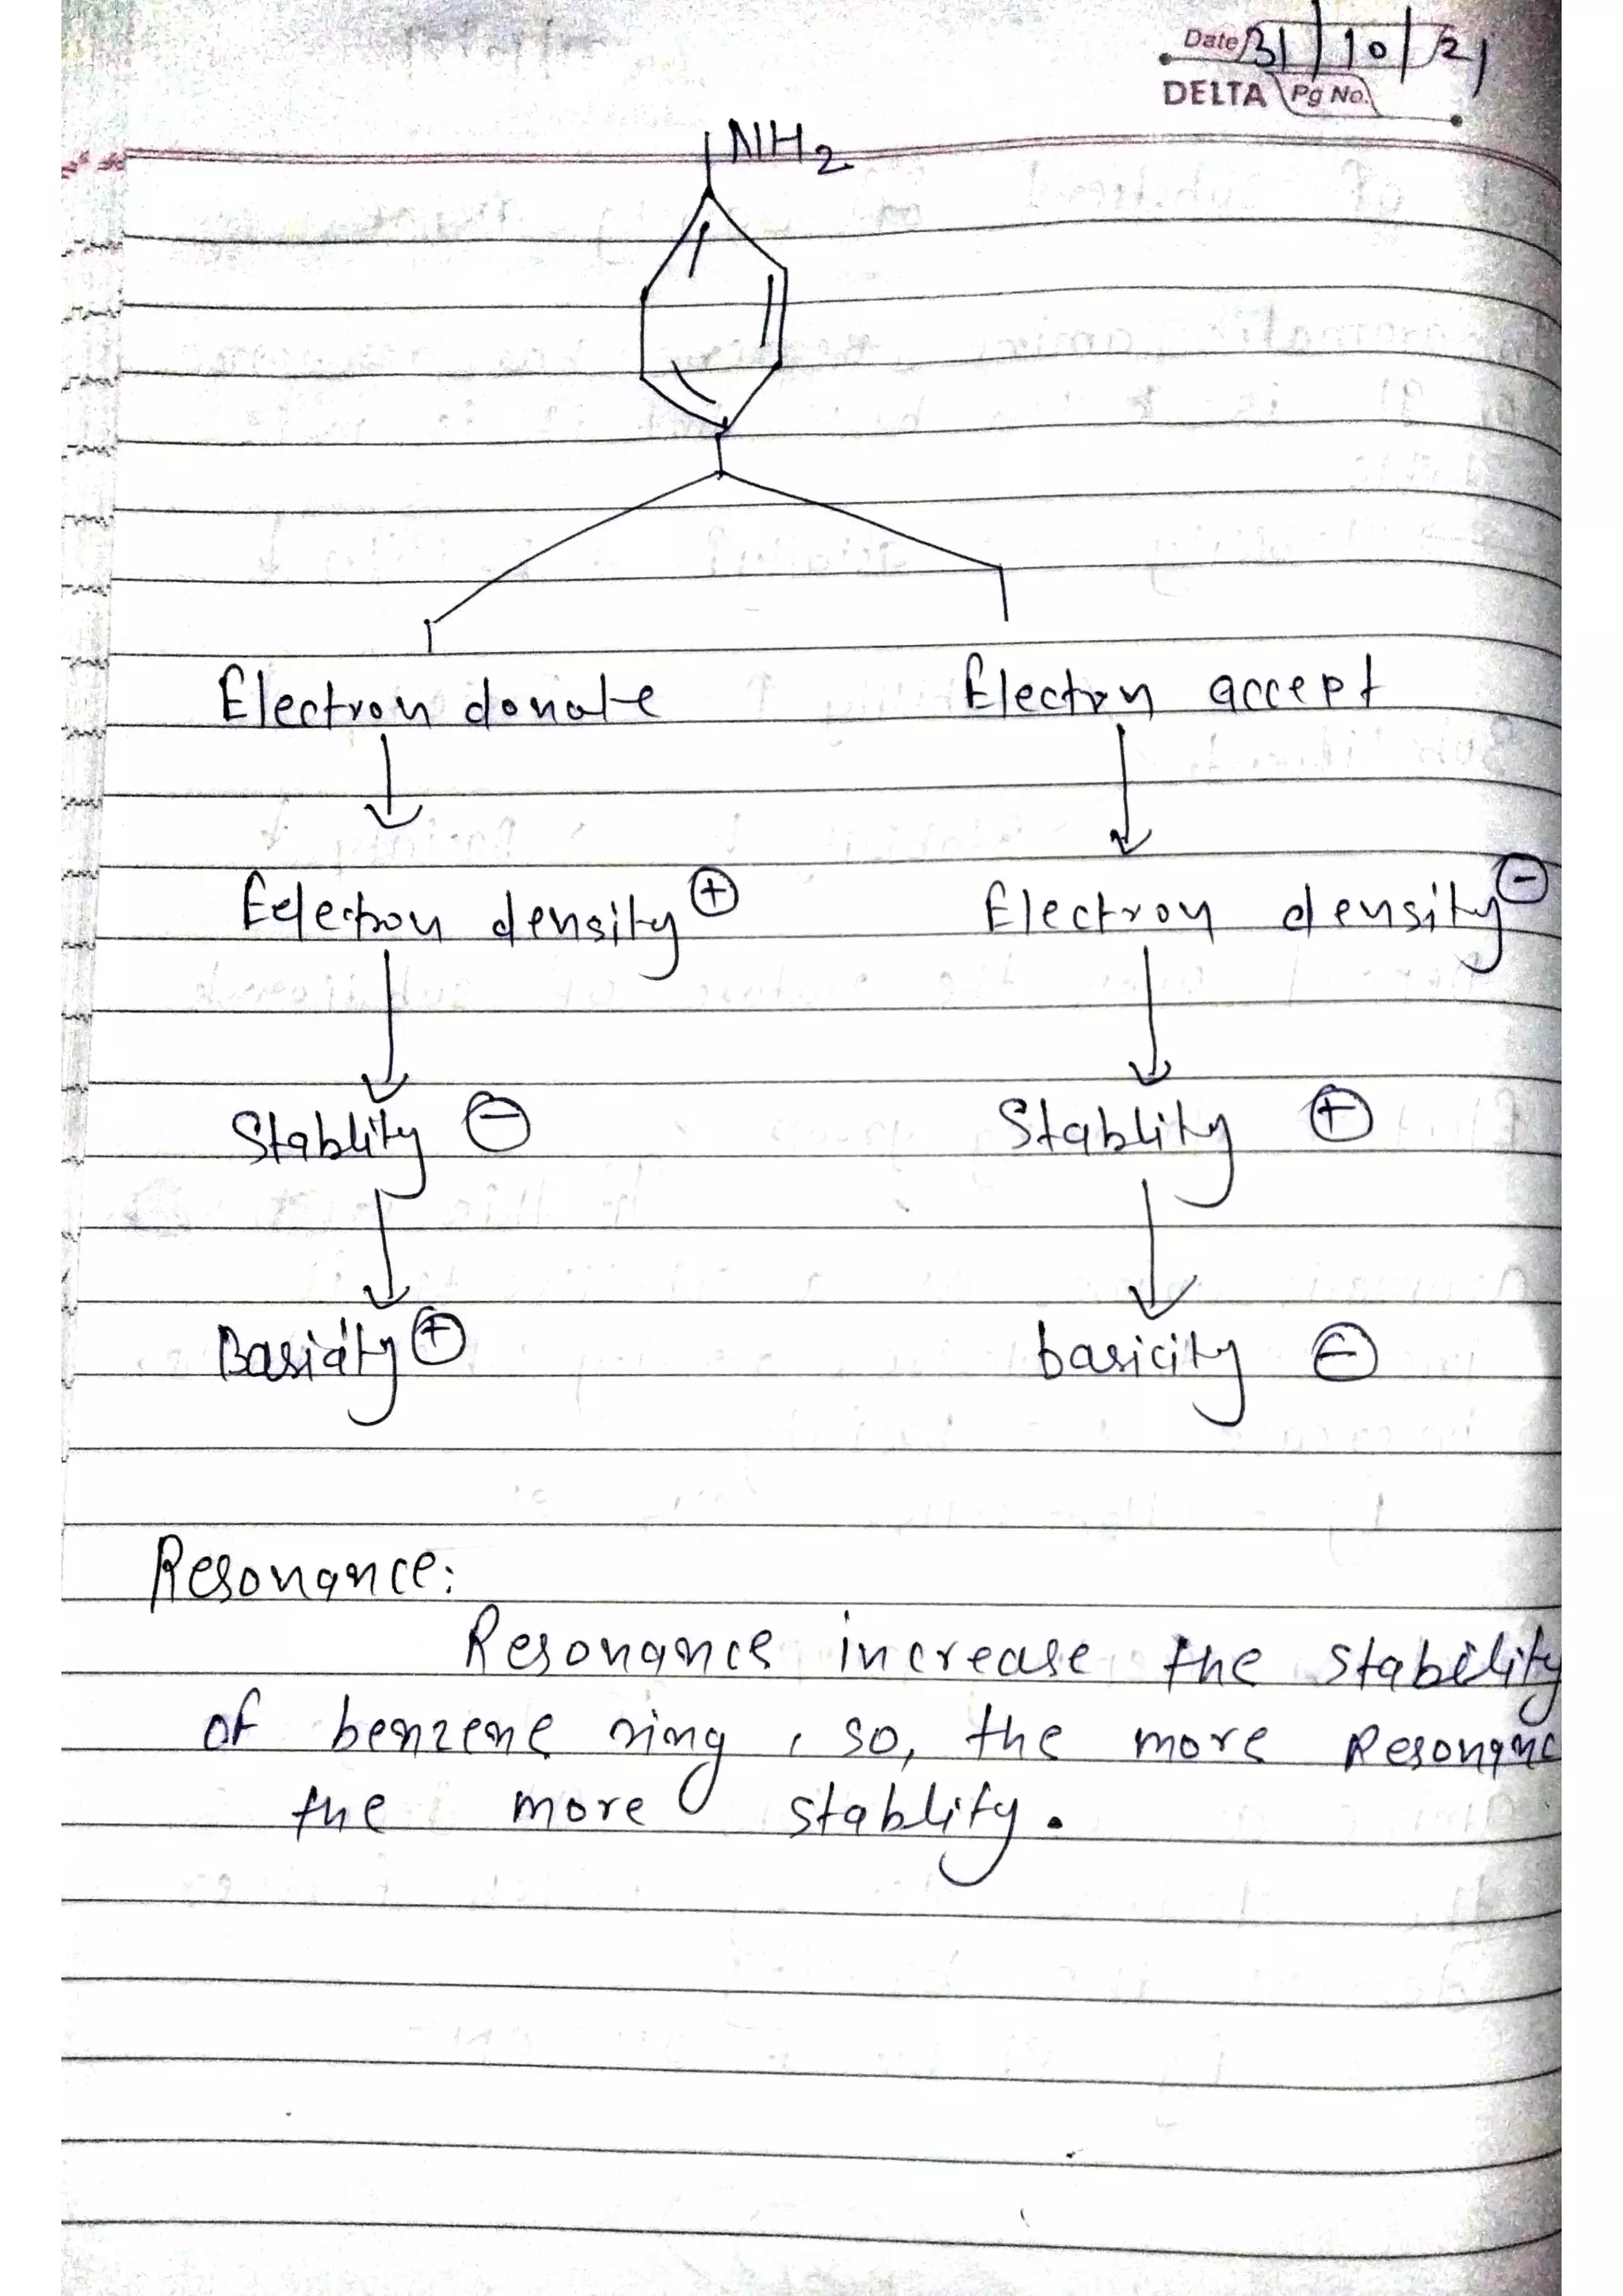 Date 31/10/21
DELTA Pg No.
NH2
Electron donate Electron accept
Eelectron density + Electron density -
Stablity - Stablity +
Basicity + basicity -
Resonance:
Resonance increase the stability
of benzene ring, so, the more Resonanc
the more stablity.